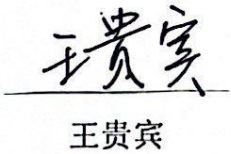 王贵宾
王贵宾